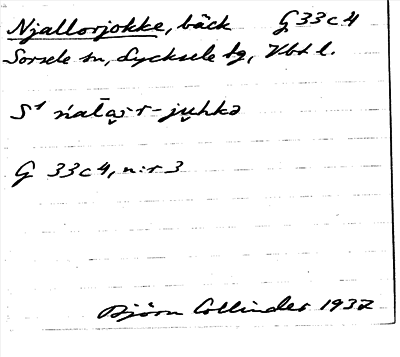 Njallorjokke, bäck G 33 c 4
Sorsele sn, Lycksele lg, Vbtl.
S¹ ńalas̯t-ju̯hkə
G 33 c 4, n:r 3
Björn Collinder 1937